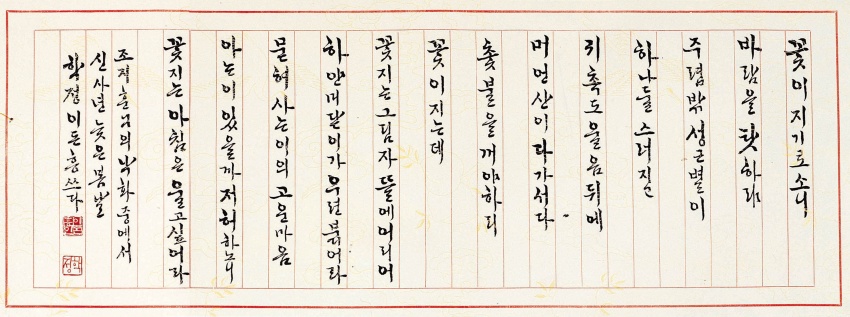 꽃이 지기로소니
바람을 탓하랴
주렴 밖 성근 별이
하나 둘 스러지고
귀촉도 울음 뒤에
머언 산이 다가서다
촛불을 꺼야하리
꽃이 지는데
꽃지는 그림자 뜰에 어리어
하얀 미닫이가 우련 붉어라
묻혀사는 이의 고운 마음
아는 이 있을까 저허하노니
꽃지는 아침은 울고 싶어라
조지훈님의 낙화 중에서
신사년 늦은 봄날
학정 이돈흥 쓰다